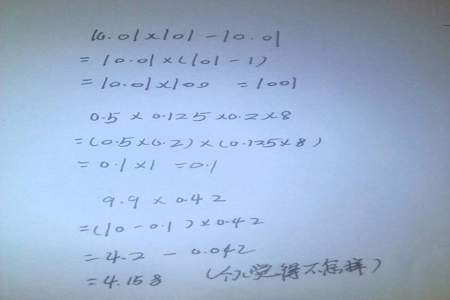 10.01×101-10.01
=10.01×(101-1)
=10.01×100 =1001
0.5×0.125×0.2×8
=(0.5×0.2)×(0.125×8)
=0.1×1 =0.1
9.9×0.42
=(10-0.1)×0.42
=4.2-0.042
=4.158 (个儿觉得不怎样)